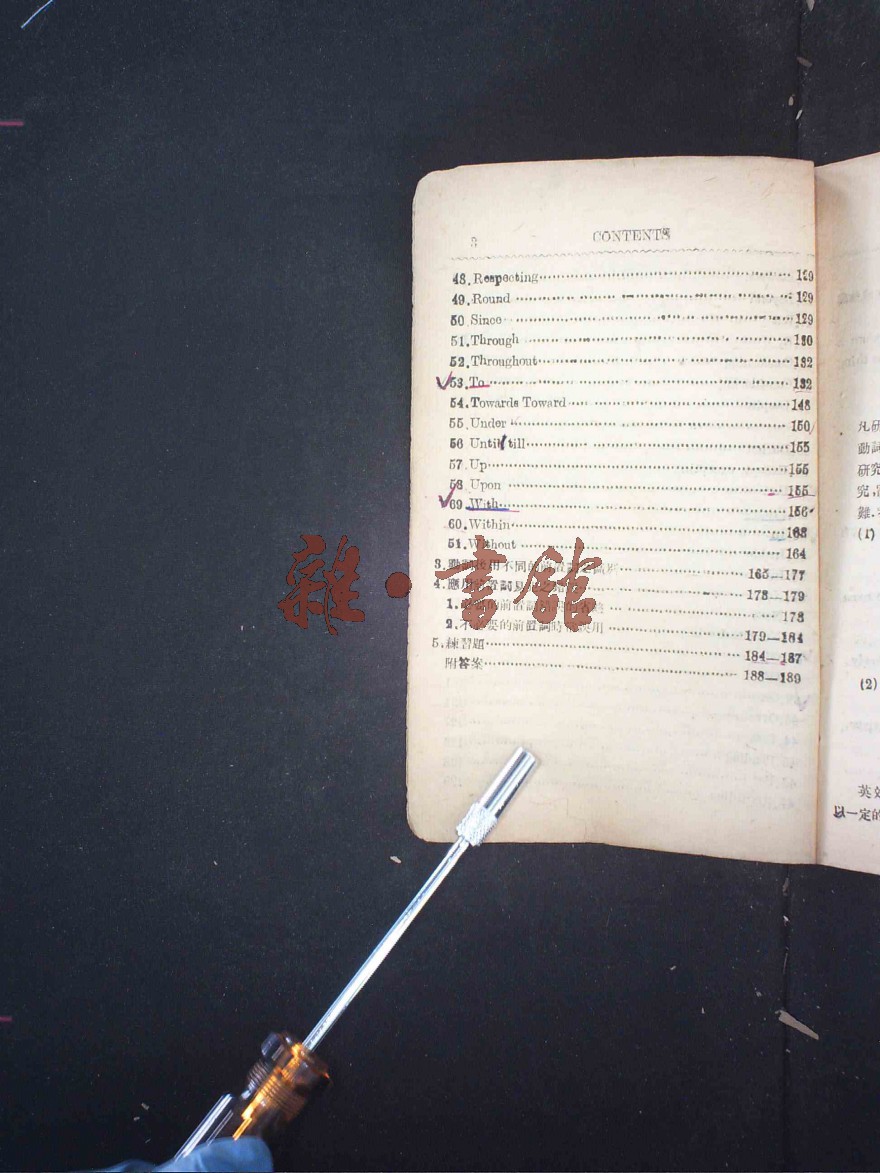 3 CONTENTS
48. Respecting 129
49. Round 129
50 Since 129
51. Through 130
52. Throughout 132
53. To 132
54. Towards Toward 148
55. Under 150
56 Until till 155
57. Up 155
58 Upon 155
69 With 156
60. Within 163
51. Without 164
3. 165—177
4. 應用前置詞 178—179
1. 的前置詞 178
2. 不必要的前置詞時 用 179—184
5. 練習題 184—187
附答案 188—189
雜·書館
凡研
動詞
研究
究,
難.
(1)
(2)
英文
以一定的